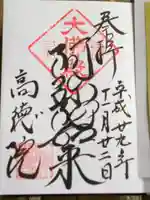 奉拝
平成廿九年
十一月廿二日
阿弥陀如来
高徳院